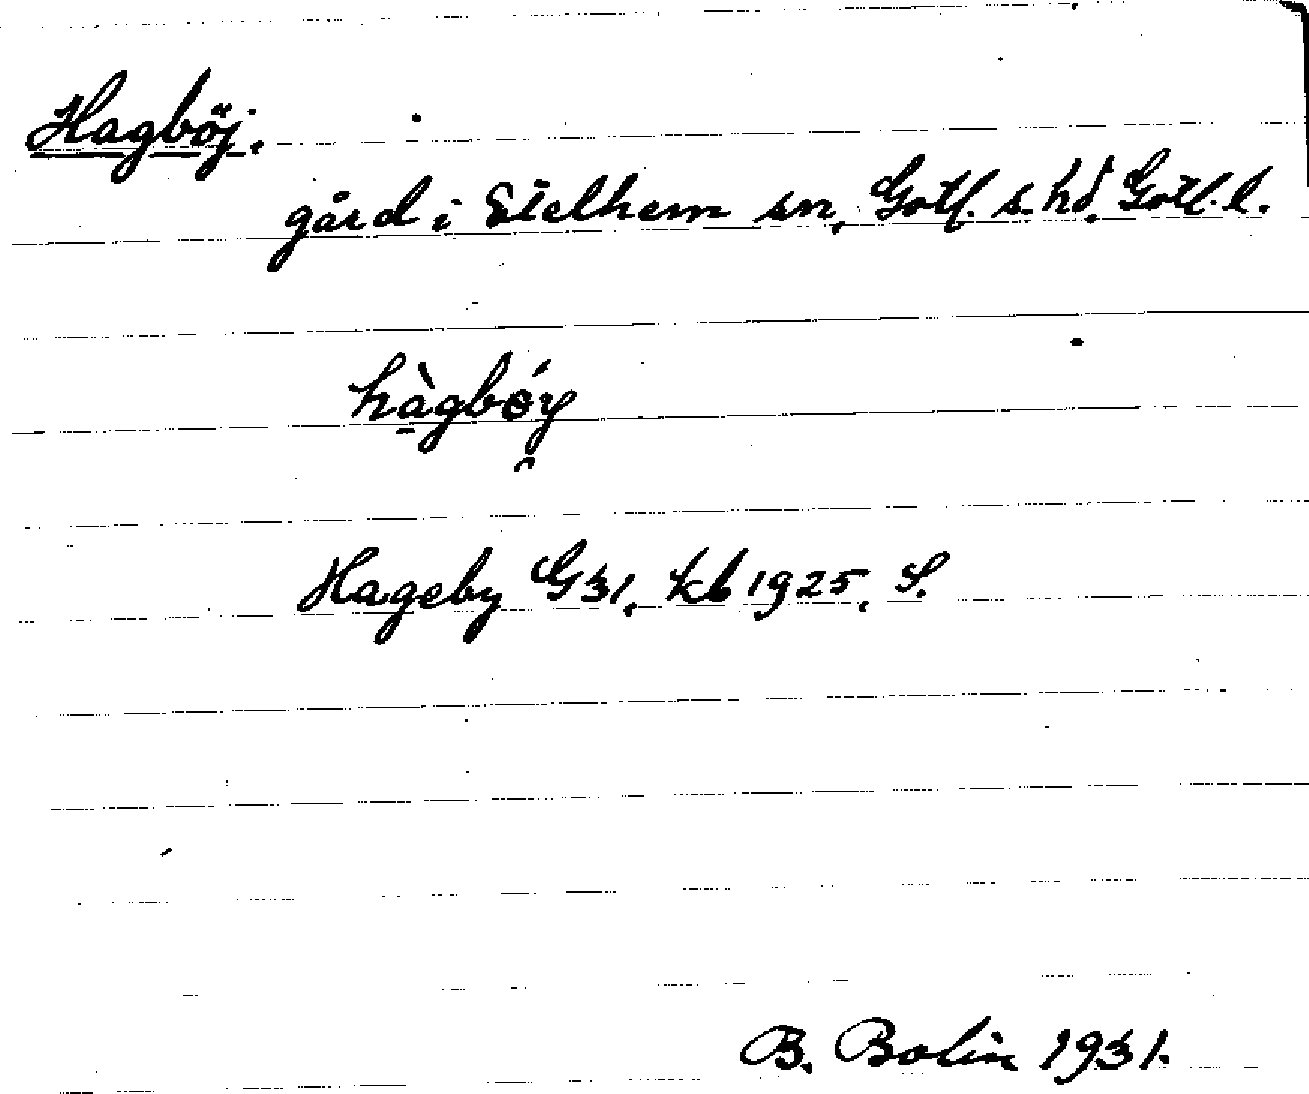 Hagböj.
gård i Etelhem sn, Gotl. s. hd, Gotl. l.
hàgbөý
Hageby G31, kb 1925, S.
B. Bolin 1931.